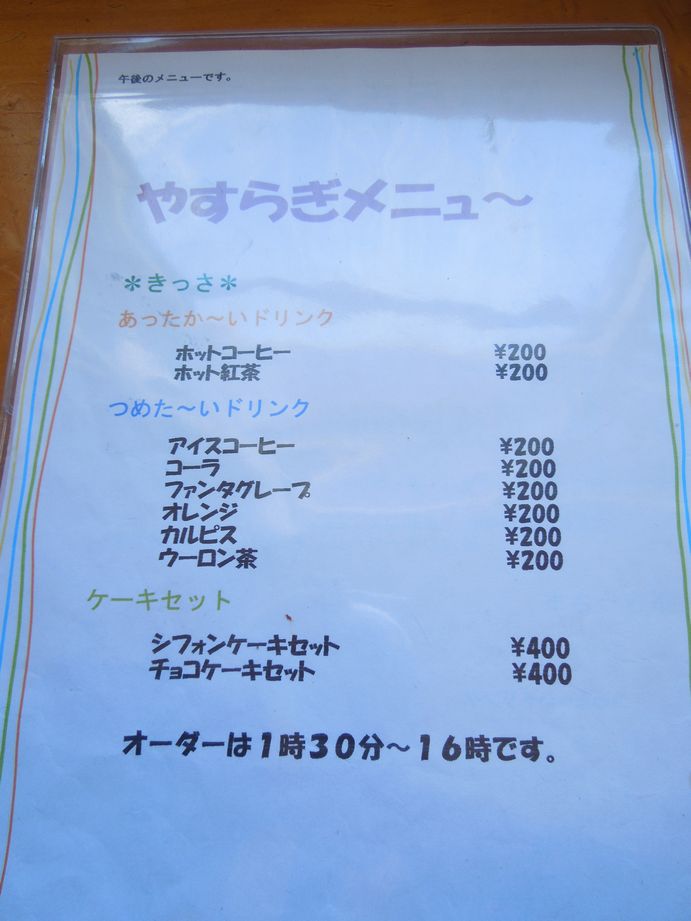 午後のメニューです。
やすらぎメニュ～
＊きっさ＊
あったか～いドリンク
ホットコーヒー ¥200
ホット紅茶 ¥200
つめた～いドリンク
アイスコーヒー ¥200
コーラ ¥200
ファンタグレープ ¥200
オレンジ ¥200
カルピス ¥200
ウーロン茶 ¥200
ケーキセット
シフォンケーキセット ¥400
チョコケーキセット ¥400
オーダーは１時３０分～１６時です。